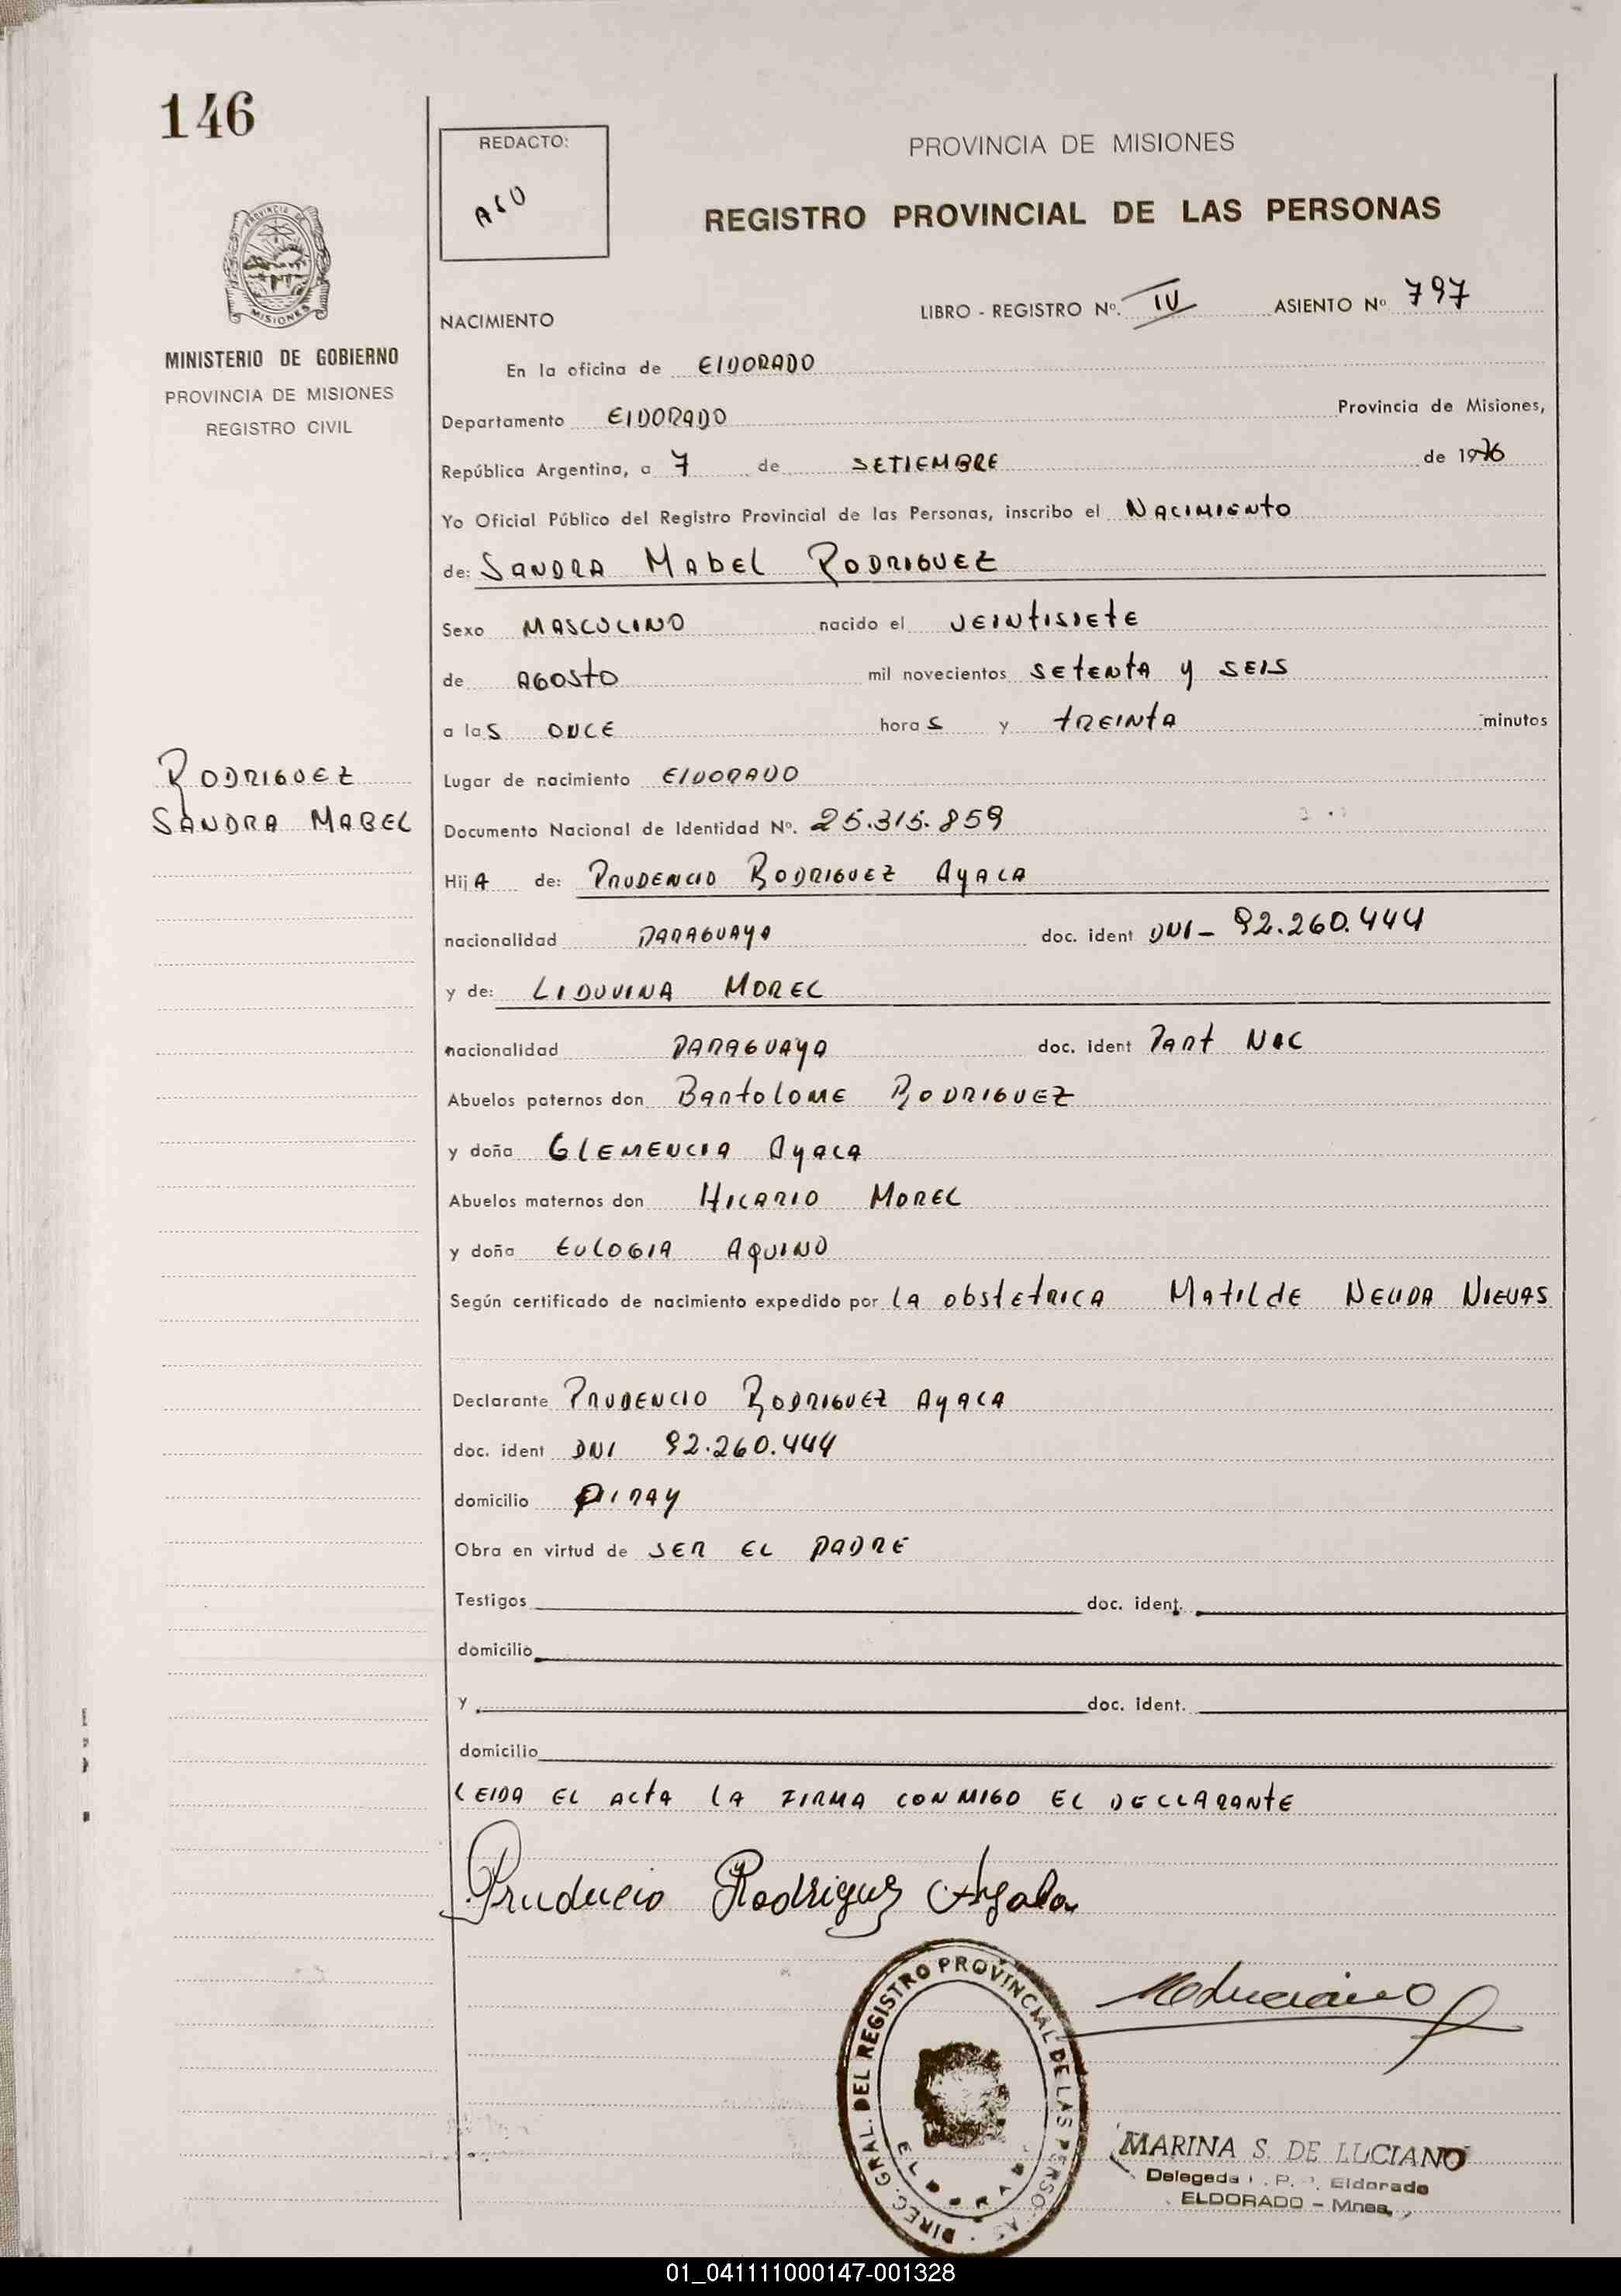 146
REDACTO:
ACO
PROVINCIA DE MISIONES
REGISTRO PROVINCIAL DE LAS PERSONAS
PROVINCIA DE
MISIONES
MINISTERIO DE GOBIERNO
PROVINCIA DE MISIONES
REGISTRO CIVIL
LIBRO - REGISTRO Nº. IV ASIENTO Nº 797
NACIMIENTO
En la oficina de ElDORADO
Departamento ElDORADO Provincia de Misiones,
República Argentina, a 7 de SETIEMBRE de 1976
Yo Oficial Público del Registro Provincial de las Personas, inscribo el NACIMIENTO
de: SANDRA MABEL RODRIGUEZ
Sexo MASCULINO nacido el VEINTISIETE
de AGOSTO mil novecientos SETENTA y SEIS
a las ONCE horas y TREINTA minutos
RODRIGUEZ
SANDRA MABEL
Lugar de nacimiento ElDORADO
Documento Nacional de Identidad Nº. 25.315.859
HijA de: PRUDENCIO RODRIGUEZ AYALA
nacionalidad PARAGUAYO doc. ident DNI - 92.260.444
y de: LIDUVINA MOREL
nacionalidad PARAGUAYA doc. ident Part NAC
Abuelos paternos don BARTOLOME RODRIGUEZ
y doña CLEMENCIA AYALA
Abuelos maternos don HILARIO MOREL
y doña EULOGIA AQUINO
Según certificado de nacimiento expedido por LA OBSTETRICA MATILDE NELIDA NIEVAS
Declarante PRUDENCIO RODRIGUEZ AYALA
doc. ident DNI 92.260.444
domicilio PIRAY
Obra en virtud de SER EL PADRE
Testigos doc. ident.
domicilio
y doc. ident.
domicilio
LEIDA EL ACTA LA FIRMA CONMIGO EL DECLARANTE
Pruducio Rodriguz Ayala
DIREC. GRAL. DEL REGISTRO PROVINCIAL DE LAS PERSONAS
ELDORADO
MARINA S. DE LUCIANO
Delegada R. P. P. Eldorado
ELDORADO - Mnes.
01_041111000147-001328